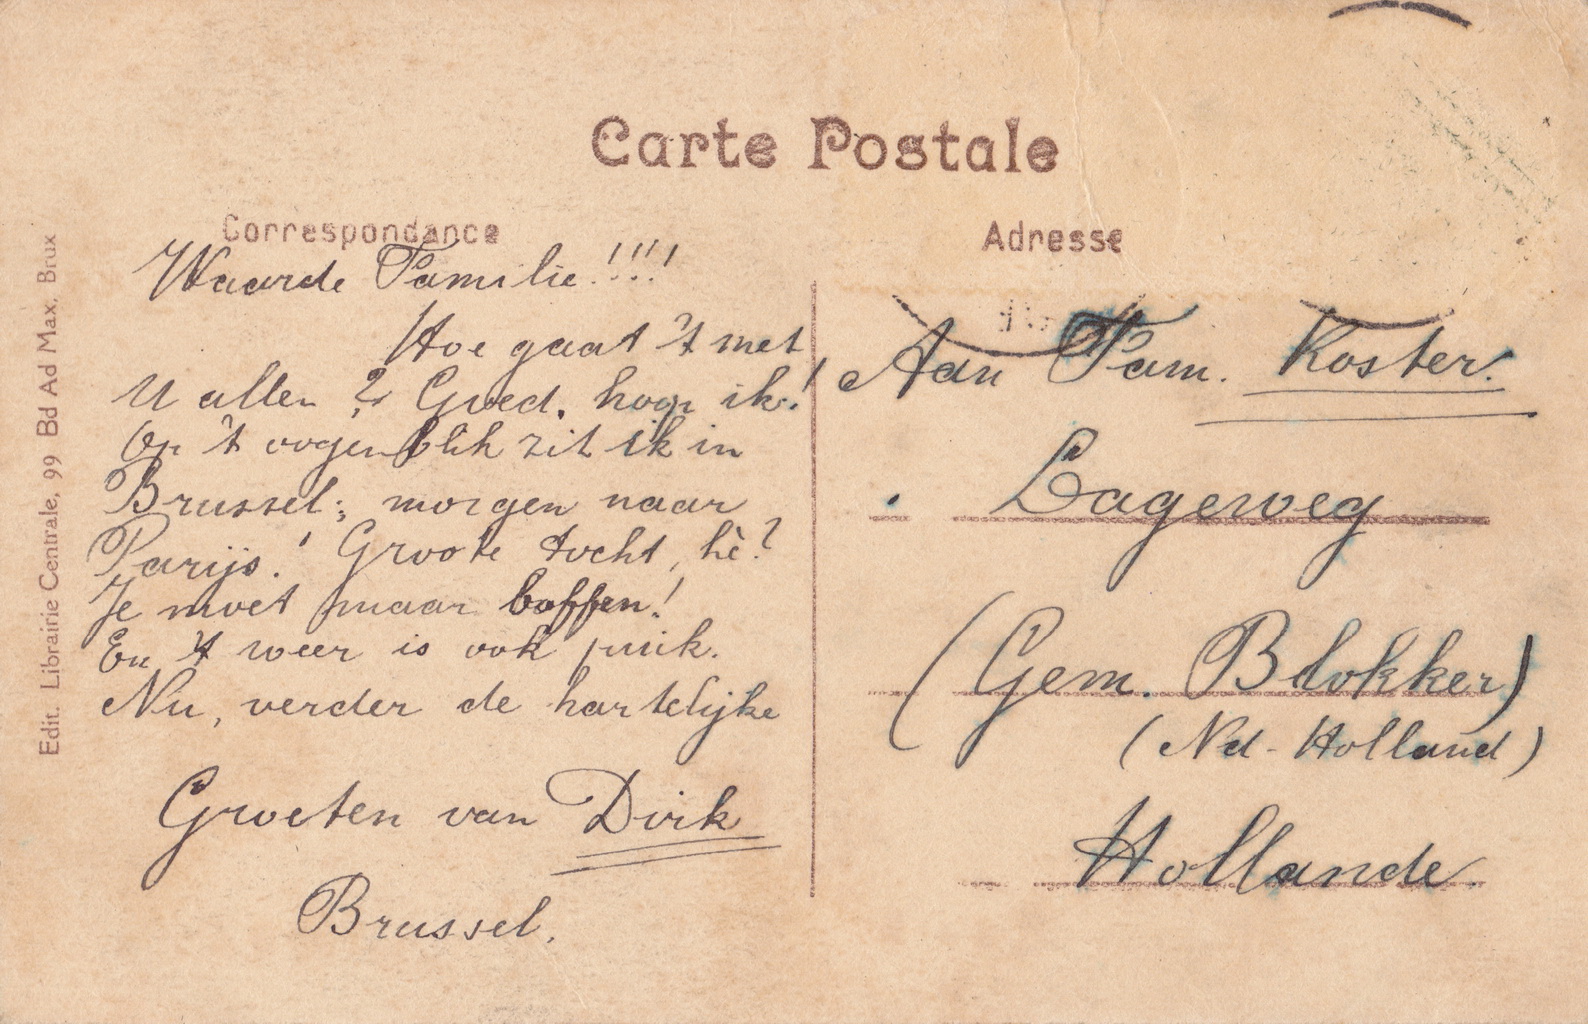 Carte Postale
Correspondance
Waarde Familie!!!!
Hoe gaat 't met
U allen? Goed, hoop ik!
Op 't oogenblik zit ik in
Brussel; morgen naar
Parijs! Groote tocht, hè?
Je moet maar boffen!
En 't weer is ook puik.
Nu, verder de hartelijke
Groeten van Dirk
Brussel.
Edit. Librairie Centrale, 99 Bd Ad Max, Brux
Adresse
Aan Fam. Koster.
Lageweg
(Gem. Blokker)
(Nd-Holland)
Hollande.